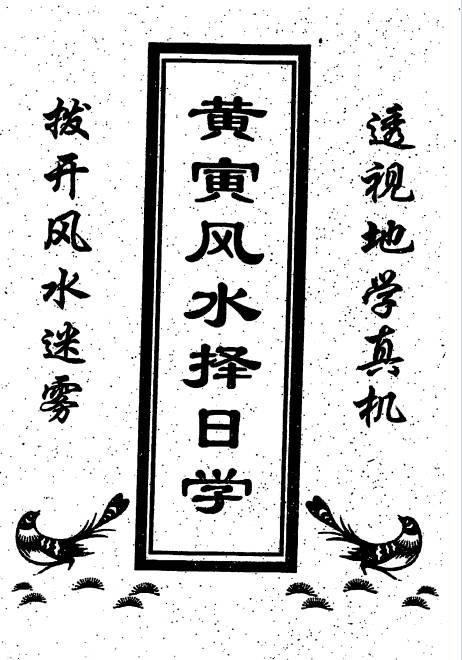 透视地学真机
黄寅风水择日学
拨开风水迷雾